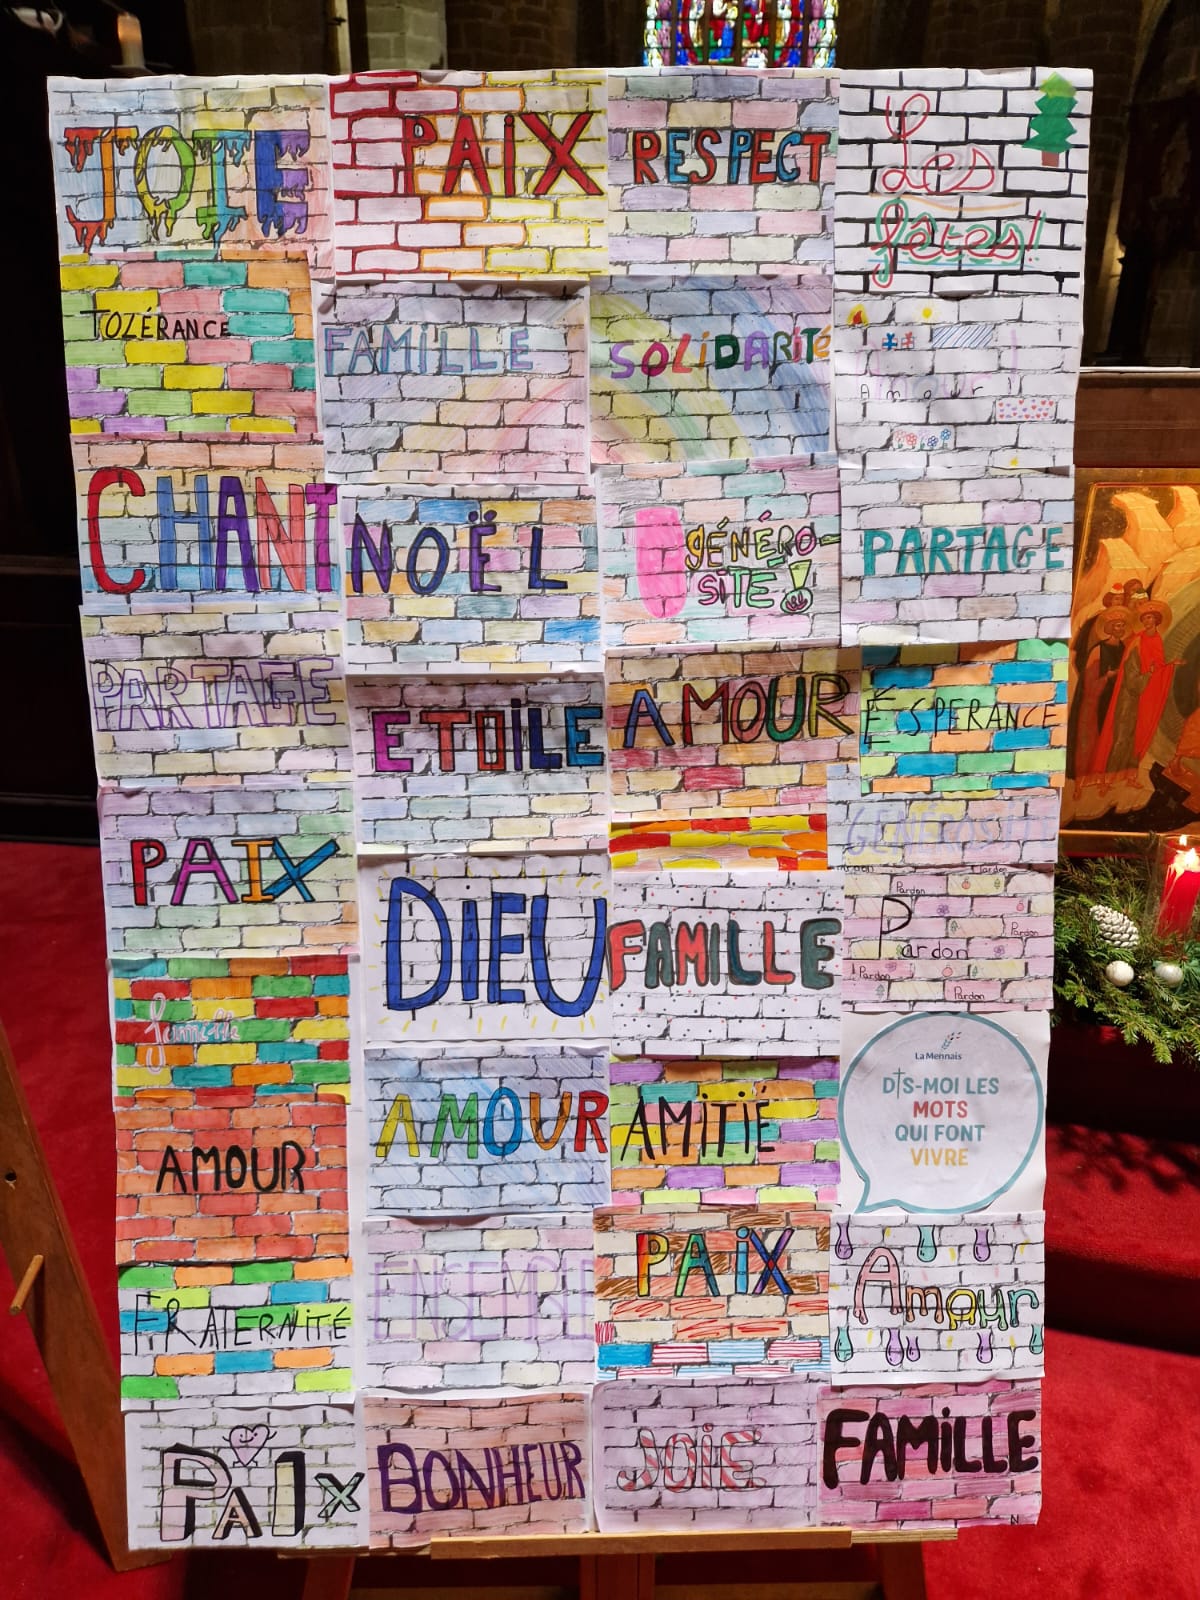 JOIE
PAIX
RESPECT
Les
fêtes!
TOLÉRANCE
FAMILLE
SOLIDARITÉ
Amour
CHANT
NOËL
GÉNÉRO-
SITÉ!
PARTAGE
PARTAGE
ETOILE
AMOUR
ÉSPERANCE
PAIX
DIEU
FAMILLE
GÉNÉROSITÉ
Pardon
Pardon
Pardon
Pardon
Pardon
Pardon
famille
AMOUR
AMITIÉ
La Mennais
DIS-MOI LES
MOTS
QUI FONT
VIVRE
AMOUR
FRATERNITÉ
ENSEMBLE
PAIX
Amour
PAIX
BONHEUR
JOIE
FAMILLE
N